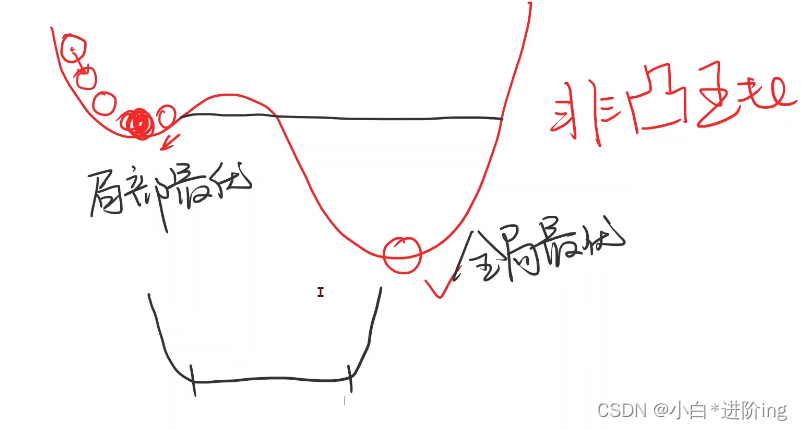 非凸
局部最优
全局最优
CSDN @小白*进阶ing